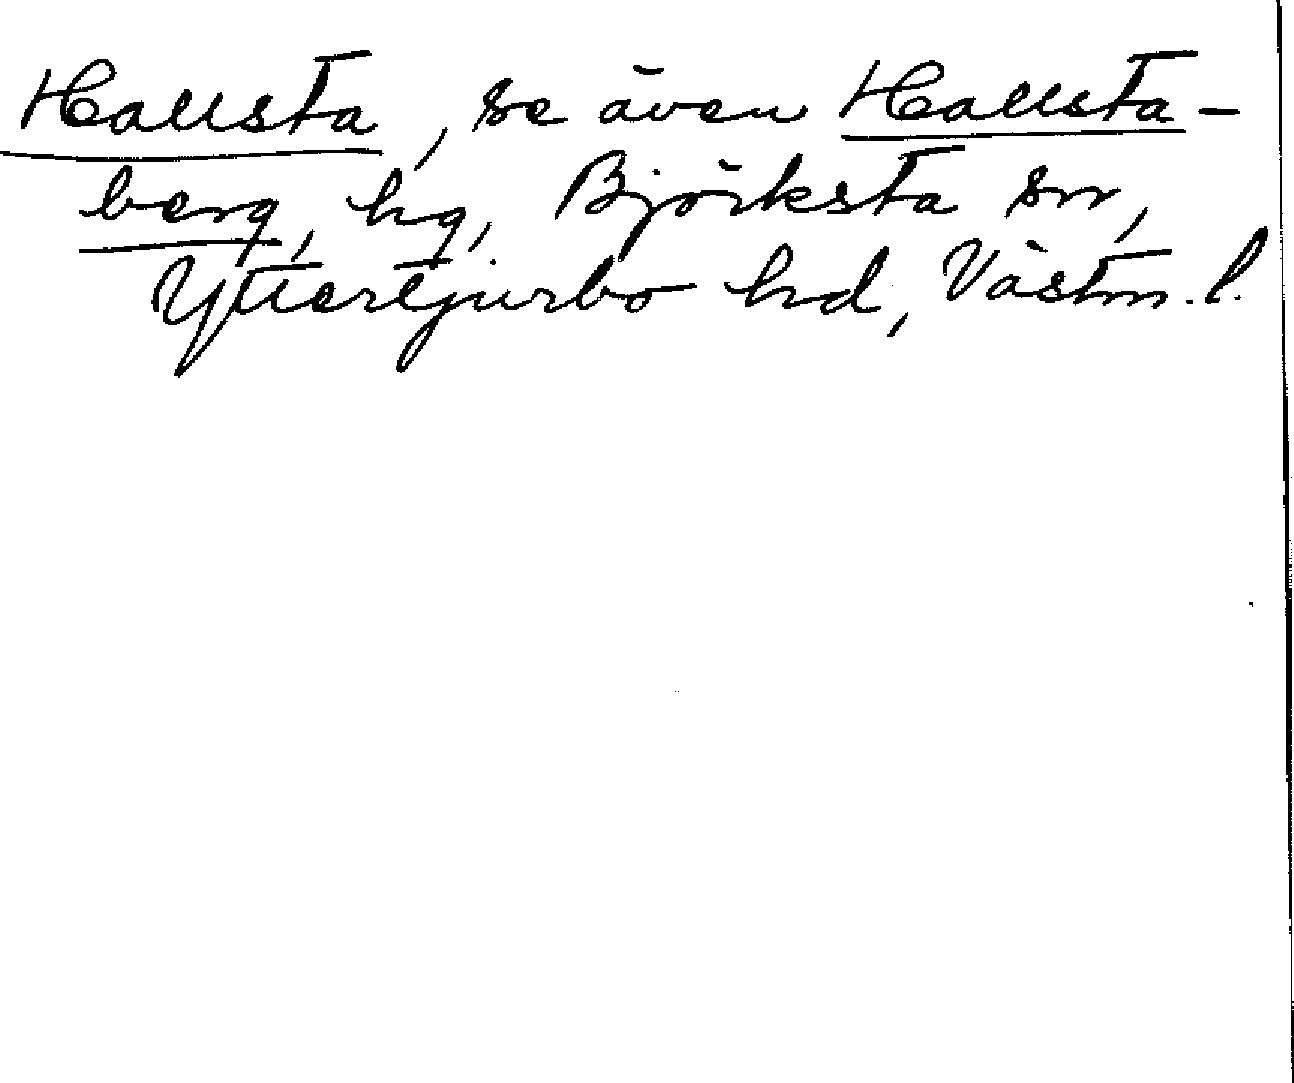 Hallsta, se även Hallsta-
berg, hg, Björksta sn,
Yttertjurbo hd, Västm. l.